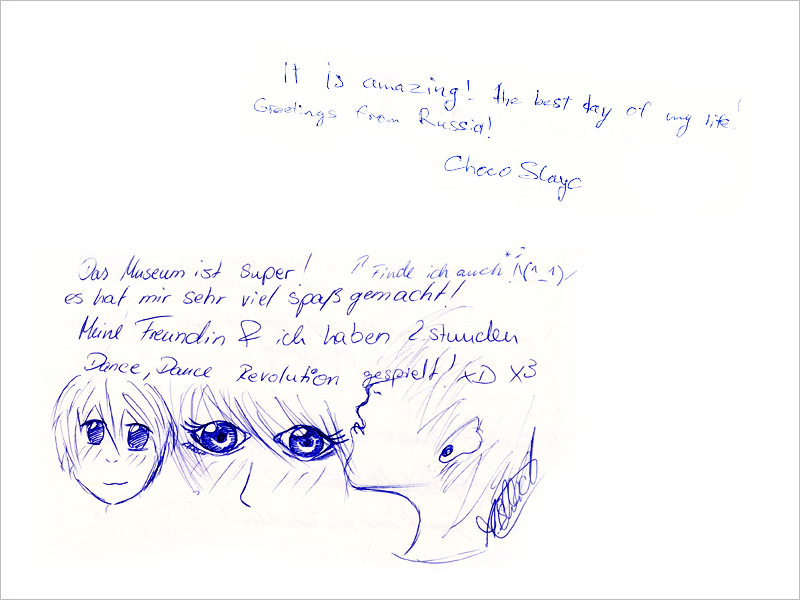 It is amazing! The best day of my life!
Greetings from Russia!
Choco Slayc
Das Museum ist super! ↑ Finde ich auch!
es hat mir sehr viel spaß gemacht!
Meine Freundin & ich haben 2 stunden
Dance, Dance Revolution gespielt! XD X3